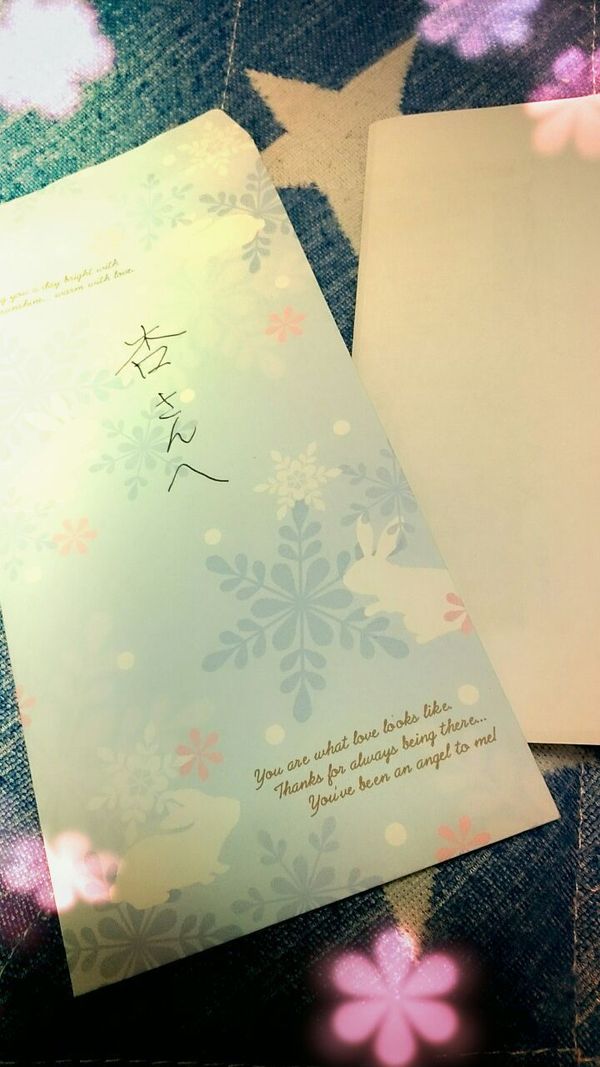 you a day bright with
sunshine... warm with love.
杏さんへ
You are what love looks like.
Thanks for always being there...
You've been an angel to me!